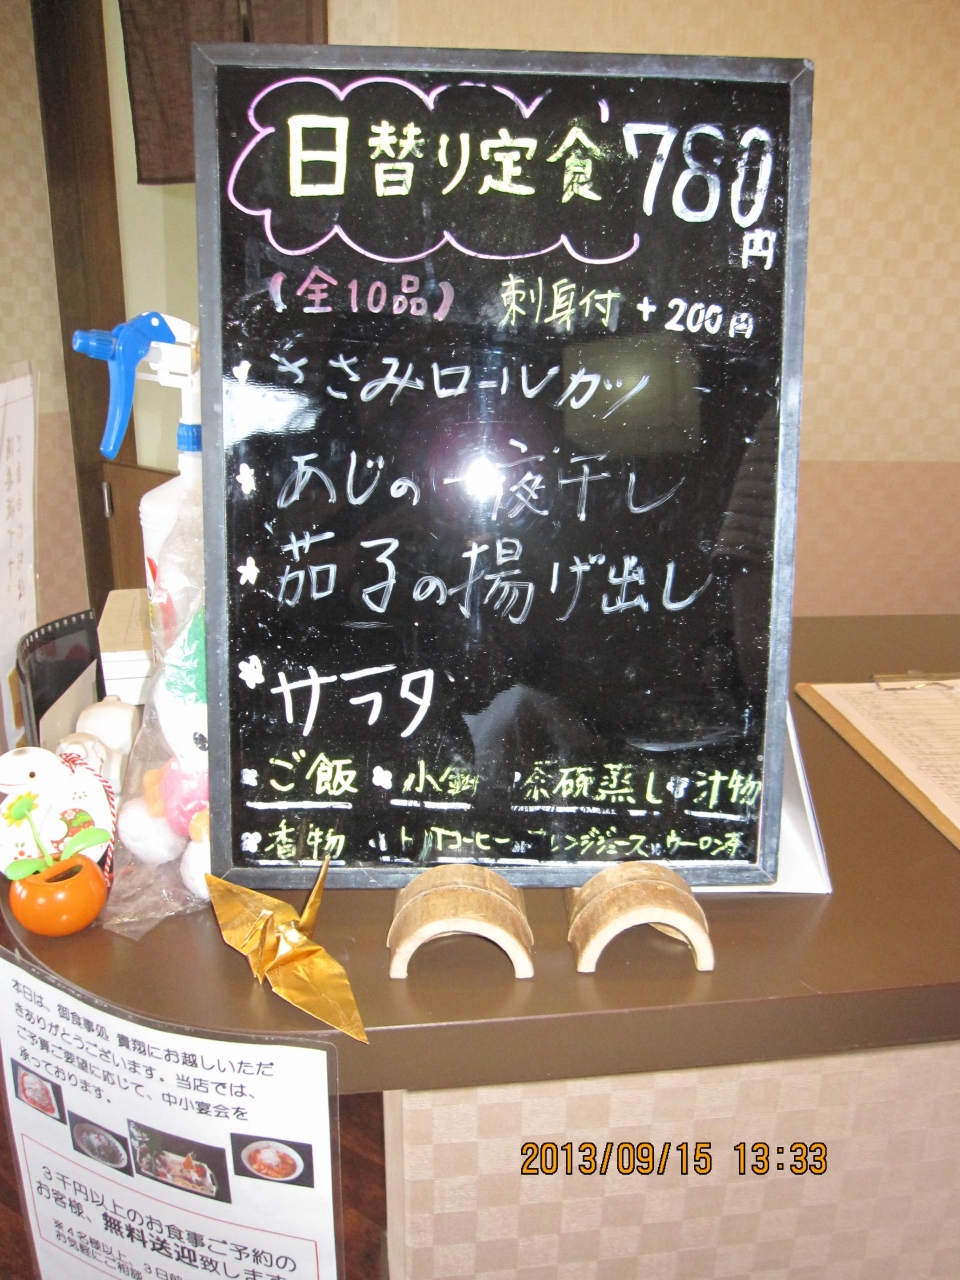 日替り定食 780円
(全10品) 刺身付 +200円
ささみロールカツ
あじの一夜干し
茄子の揚げ出し
サラダ
ご飯 小鉢 茶碗蒸し 汁物
香物 コーヒー オレンジジュース ウーロン茶
本日は、御食事処 貴翔にお越しいただ
きありがとうございます。当店では、
ご予算ご要望に応じて、中小宴会を
承っております。
3千円以上のお食事ご予約の
お客様、無料送迎致します
※4名様以上、3日前
お気軽にご相談
2013/09/15 13:33